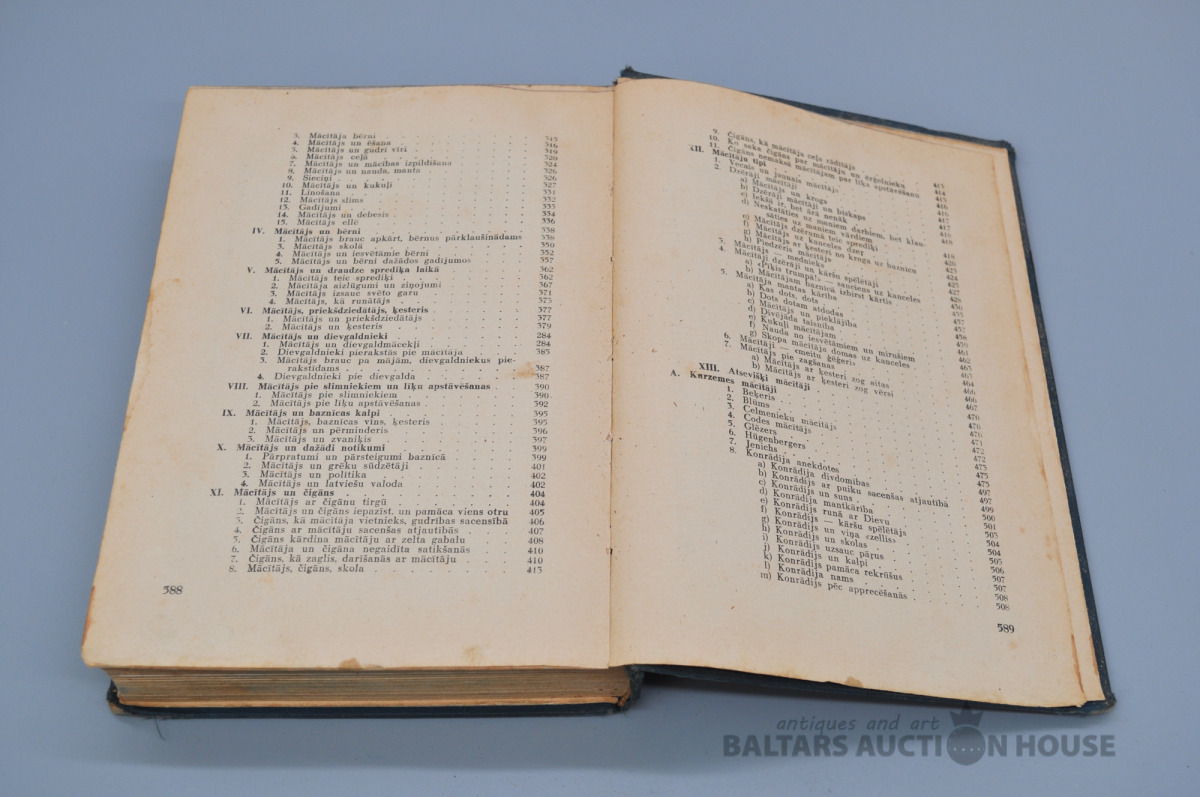 3. Mācītāja bērni 345
4. Mācītājs un ēšana 346
5. Mācītājs un gudri vīri 349
6. Mācītājs ceļā 320
7. Mācītājs un mācības izpildīšana 324
8. Mācītājs un nauda, manta 326
9. Sieciņi 326
10. Mācītājs un kukuļi 327
11. Linošana 331
12. Mācītājs slims 332
13. Gadījumi 333
14. Mācītājs un debesis 334
15. Mācītājs ellē 336
IV. Mācītājs un bērni 338
1. Mācītājs brauc apkārt, bērnus pārklaušinādams 338
3. Mācītājs skolā 350
4. Mācītājs un iesvētāmie bērni 352
5. Mācītājs un bērni dažādos gadījumos 357
V. Mācītājs un draudze sprediķa laikā 362
1. Mācītājs teic sprediķi 362
2. Mācītāja aizlūgumi un ziņojumi 367
3. Mācītājs izsauc svēto garu 371
4. Mācītājs, kā runātājs 373
VI. Mācītājs, priekšdziedātājs, ķesteris 377
1. Mācītājs un priekšdziedātājs 377
2. Mācītājs un ķesteris 379
VII. Mācītājs un dievgaldnieki 284
1. Mācītājs un dievgaldmācekļi 284
2. Dievgaldnieki pierakstās pie mācītāja 385
3. Mācītājs brauc pa mājām, dievgaldniekus pierakstīdams 387
4. Dievgaldnieki pie dievgalda 387
VIII. Mācītājs pie slimniekiem un līķu apstāvēšanas 390
1. Mācītājs pie slimniekiem 390
2. Mācītājs pie līķu apstāvēšanas 392
IX. Mācītājs un baznīcas kalpi 395
1. Mācītājs, baznīcas vīns, ķesteris 395
2. Mācītājs un pērminderis 396
3. Mācītājs un zvaniķis 397
X. Mācītājs un dažādi notikumi 399
1. Pārpratumi un pārsteigumi baznīcā 399
2. Mācītājs un grēku sūdzētāji 401
3. Mācītājs un politika 402
4. Mācītājs un latviešu valoda 402
XI. Mācītājs un čigāns 404
1. Mācītājs ar čigānu tirgū 404
2. Mācītājs un čigāns iepazīst, un pamāca viens otru 405
3. Čigāns, kā mācītāja vietnieks, gudrības sacensībā 406
4. Čigāns ar mācītāju sacenšas atjautībās 407
5. Čigāns kārdina mācītāju ar zelta gabalu 408
6. Mācītāja un čigāna negaidīta satikšanās 410
7. Čigāns, kā zaglis, darīšanās ar mācītāju 410
8. Mācītājs, čigāns, skola 413
588
9. Čigāns, kā mācītāja ceļa rādītājs 413
10. Ko saka čigāns par mācītāju un ērģelnieku 414
11. Čigāns nemaksā mācītājam par līķa apstāvēšanu 415
XII. Mācītāju tipi 416
1. Vecais un jaunais mācītājs 416
2. Dzērāji mācītāji
a) Mācītājs un krogs
b) Dzērāji mācītāji un bīskaps
c) Iekšā ir, bet ārā nenāk
d) Neskatāties uz maniem darbiem, bet klausāties uz maniem vārdiem
e) Mācītājs dzērumā teic sprediķi
f) Mācītājs uz kanceles dzer
g) Mācītājs ar ķesteri no kroga uz baznīcu
h) Piedzēris mācītājs
3. Mācītājs — mednieks
4. Mācītāji dzērāji un kāršu spēlētāji
a) «Piķis trumpā!» — sauciens uz kanceles
b) Mācītājam baznīcā izbirst kārtis
5. Mācītāja mantas kāriba
a) Kas dots, dots
b) Dots dotam atdodas
c) Mācītājs un pieklājība
d) Divējāda taisnība
e) Kukuļi mācītājam
f) Nauda no iesvētāmiem un mirušiem
g) Skopa mācītāja domas uz kanceles
6. Mācītājs — meitu ģēģeris
7. Mācītājs pie zagšanas
a) Mācītājs ar ķesteri zog aitas
b) Mācītājs ar ķesteri zog vērsi
XIII. Atsevišķi mācītāji
A. Kurzemes mācītāji
1. Beķeris 470
2. Blūms 470
3. Celmenieku mācītājs 470
4. Codes mācītājs 471
5. Glēzers 472
6. Hūgenbergers 472
7. Jenichs 475
8. Konrādija anekdotes 475
a) Konrādija divdomības 475
b) Konrādijs ar puiku sacenšas atjautībā 497
c) Konrādijs un suns 497
d) Konrādija mantkārība 499
e) Konrādijs runā ar Dievu 500
f) Konrādijs — kāršu spēlētājs 501
g) Konrādijs un viņa «zellis» 503
h) Konrādijs un skolas 504
i) Konrādijs uzsauc pāŗus 504
j) Konrādijs un kalpi 505
k) Konrādijs pamāca rekrūšus 506
l) Konrādija nams 507
m) Konrādijs pēc apprecēšanās 508
589
antiques and art
BALTARS AUCTION HOUSE